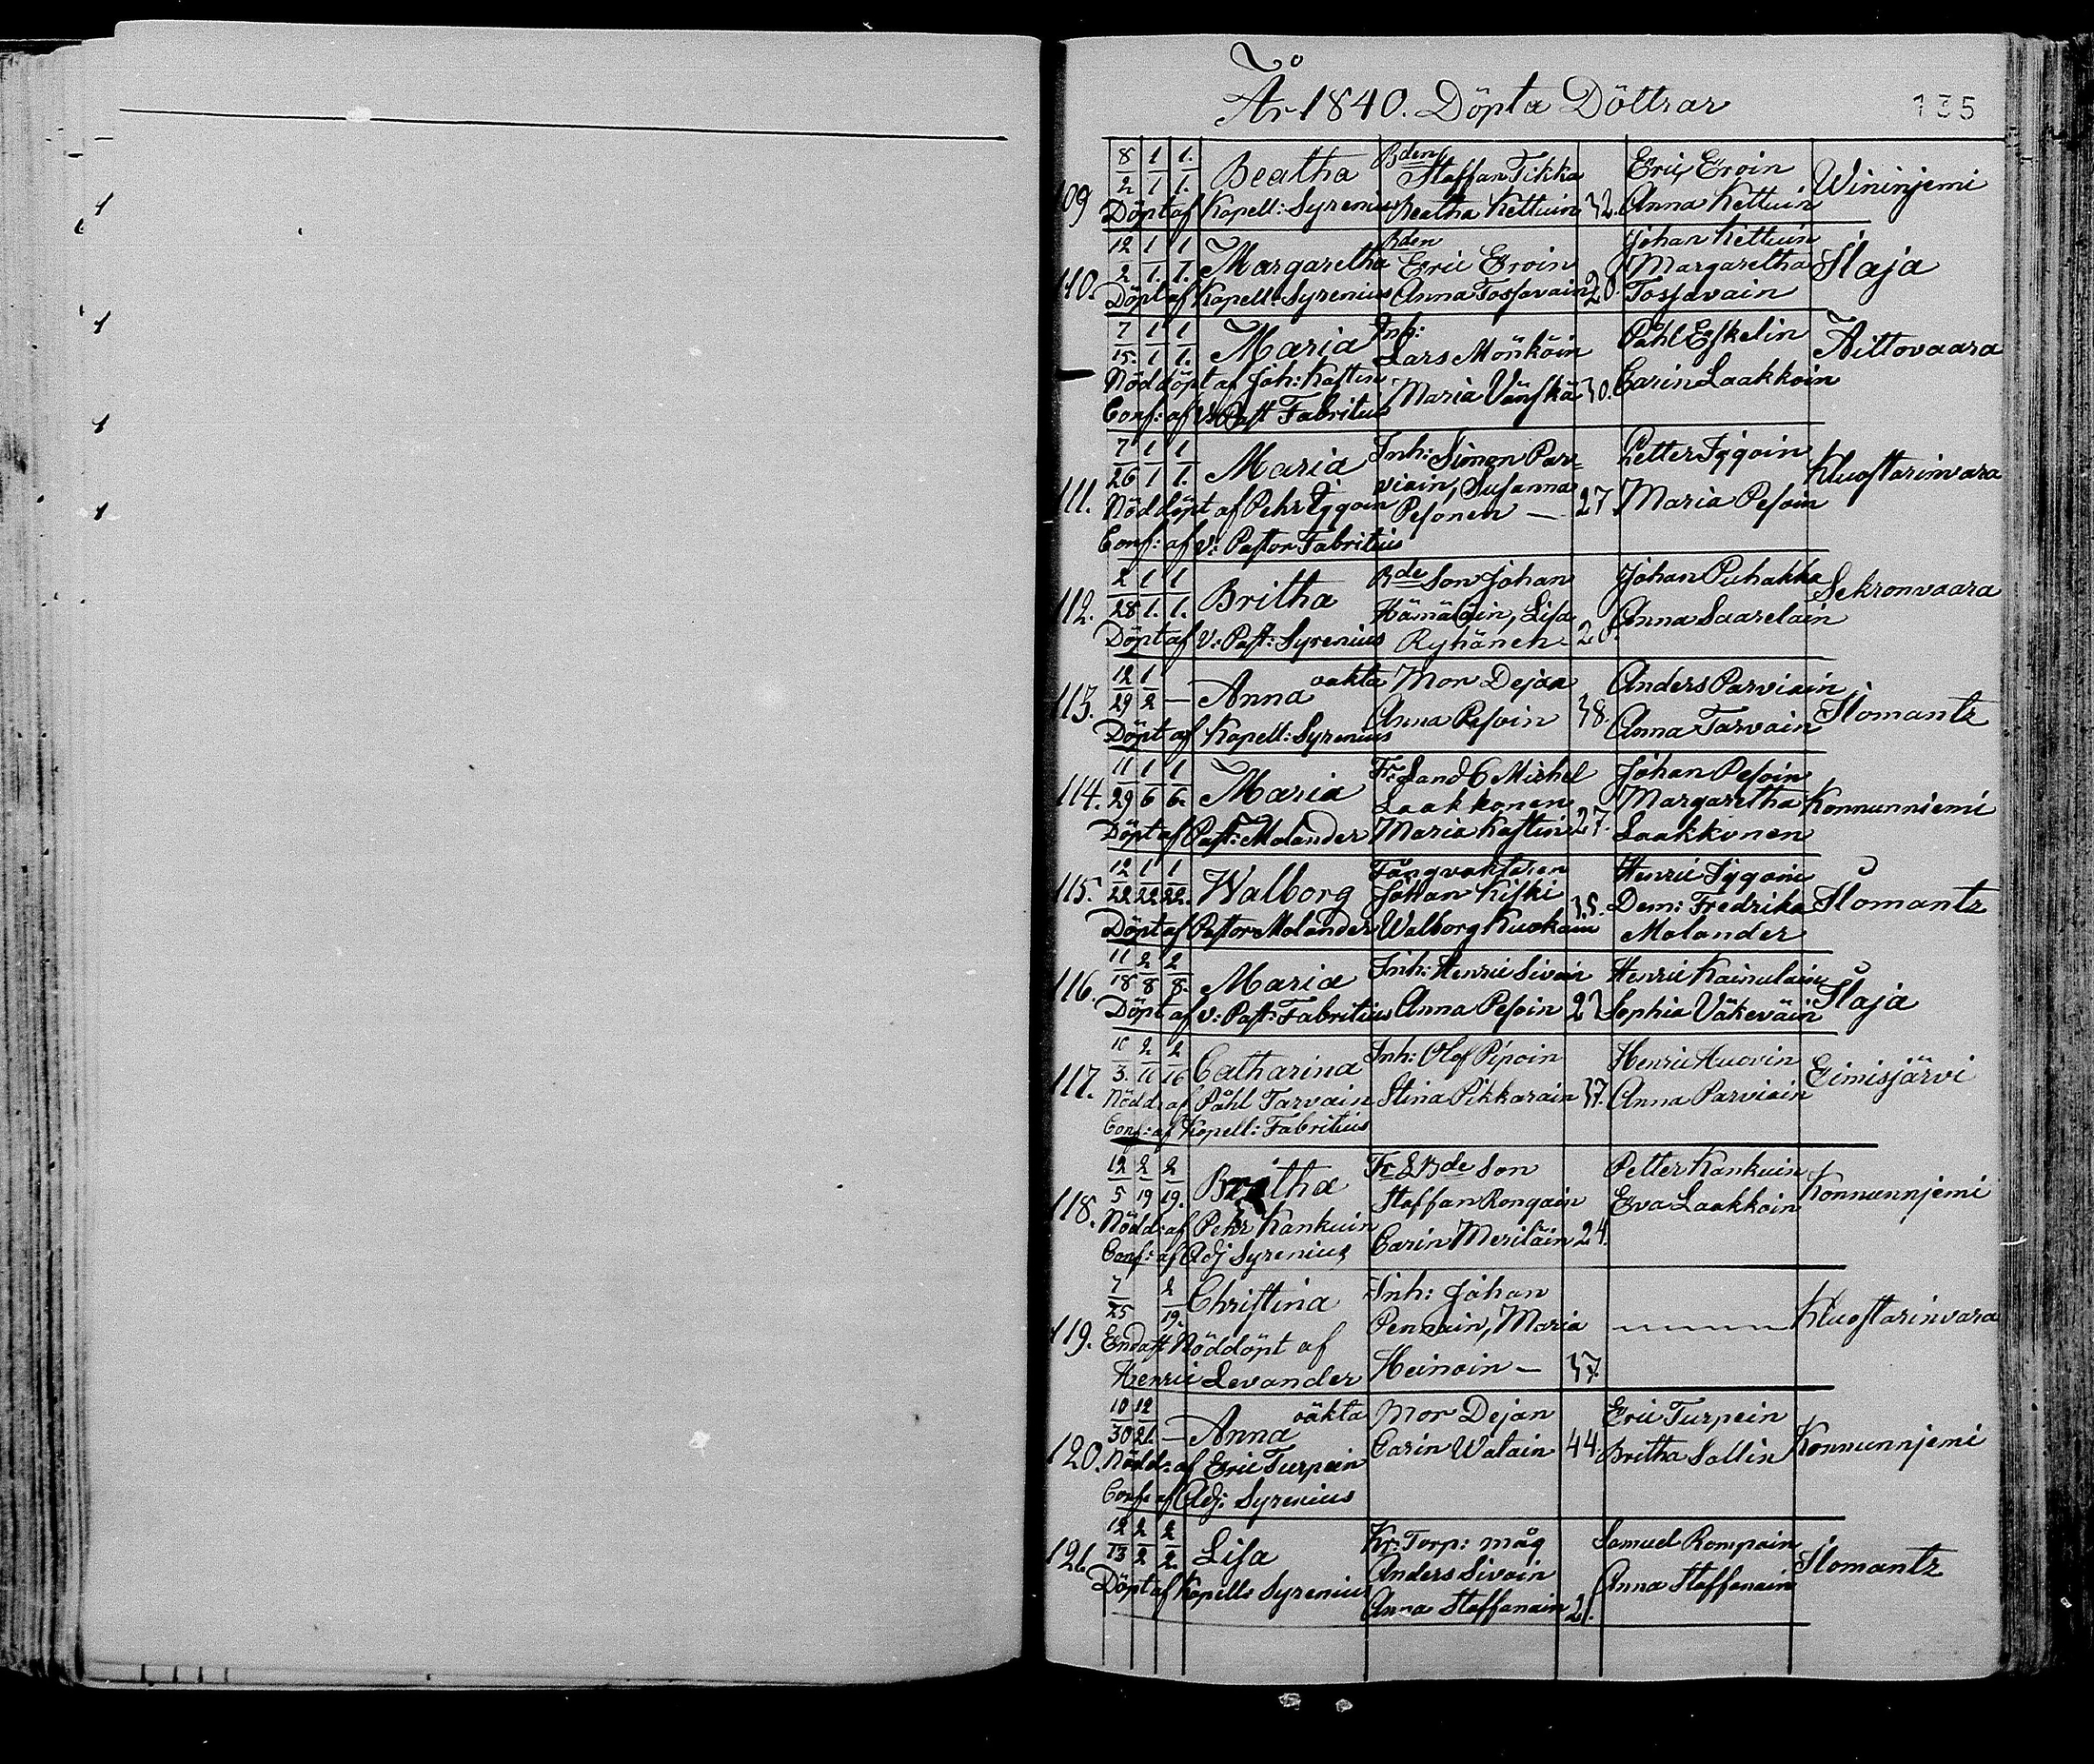 År 1840. Döpta Döttrar
135
109 8/2 1/1 1./1. Beatha Bden Staffan Tikka Eric Eroin Wininjemi
Döpt af Kapell: Syrenius Beatha Kettuin 32. Anna Kettuin
110. 12/2 1/1. 1/1. Margaretha Bden Eric Eroin Johan Kettuin Ilaja
Margaretha
Döpt af Kapell: Syrenius Anna Tossavain 20. Tossavain
7/15. 1/1 1/1. Maria Inh: Lars Mönköin Påhl Eskelin Aittovaara
Nöddöpt af Joh: Kastin Maria Vänskä 30. Carin Laakkoin
Conf: af V: Past Fabritius
111. 7/26 1/1 1/1. Maria Inh: Simon Par= Petter Iggoin Kluostarinvara
viain, Susanna
Nöddöpt af Pehr Iggoin Pesonen — 27. Maria Pesoin
Conf: af v: Pastor Fabritius
112. 2/28 1/1. 1/1. Britha Bde Son Johan Johan Puhakka Sekronvaara
Hämäläin, Lisa Anna Saarelain
Döpt af V: Past: Syrenius Ryhänen 20.
113. 12/29 1/2 — Anna oäkta Mor Dejan Anders Parviain Ilomantz
Anna Pesoin 38. Anna Tarvain
Döpt af Kapell: Syrenius
114. 11/29 1/6 1/6. Maria Fr: Land B Michel Johan Pesoin Konnunniemi
Laakkonen Margaretha
Döpt af Past: Molander Maria Kastin 27. Laakkonen
115. 12/22 1/22 1/22. Walborg Fångvaktaren Henric Iggoin Ilomantz
Johan Kiski 35. Dem: Fredrika
Döpt af Pastor Molander Walborg Kuokain Molander
116. 11/18 2/8 2/8. Maria Inh: Henric Sivoin Henric Kainulain Ilaja
Döpt af v: Past: Fabritius Anna Pesoin 23 Sophia Väkeväin
117. 10/3. 2/16 2/16 Catharina Inh: Olof Pipoin Henric Huovin Eimisjärvi
Nödd: af Påhl Tarvain Stina Pikkarain 37. Anna Parviain
Conf: af Kapell: Fabritius
118. 12/5 2/19 2/19. Britha Fr L Bde Son Petter Kankuin Konnunnjemi
Staffan Rongain Eva Laakkoin
Nödd: af Pehr Kankuin
Conf: af Adj Syrenius Carin Meriläin 24.
119. 7/25 2/19. Christina Inh: Johan Kluostarinvara
Pennain, Maria
Endast Nöddöpt af
Henric Levander Heinoin — 37.
120. 10/30 12/21. — Anna oäkta Mor Dejan Eric Turpein Konnunnjemi
Carin Watain 44. Britha Sallin
Nödd: af Eric Turpein
Conf: af Adj: Syrenius
121. 12/13 2/2 2/2. Lisa Kr: Torp: måg Samuel Rompain Ilomantz
Anders Sivoin Anna Staffanain
Döpt af Kapell: Syrenius Anna Staffanain 21.